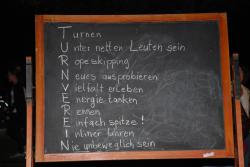 Turnen
Unter netten Leuten sein
Ropeskipping
Neues ausprobieren
Vielfalt erleben
Energie tanken
Rennen
Einfach spitze!
Inliner fahren
Nie unbeweglich sein